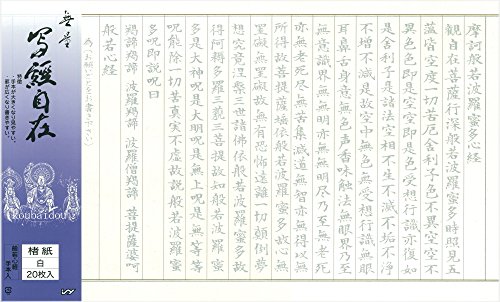 無量
写経自在
特徴
koubaidou
楮紙
白
20枚入
般若心経
手本入
摩訶般若波羅蜜多心経
観自在菩薩行深般若波羅蜜多時照見五
蘊皆空度一切苦厄舎利子色不異空空不
異色色即是空空即是色受想行識亦復如
是舎利子是諸法空相不生不滅不垢不浄
不増不減是故空中無色無受想行識無眼
耳鼻舌身意無色声香味触法無眼界乃至
無意識界無無明亦無無明尽乃至無老死
亦無老死尽無苦集滅道無智亦無得以無
所得故菩提薩埵依般若波羅蜜多故心無
罣礙無罣礙故無有恐怖遠離一切顛倒夢
想究竟涅槃三世諸佛依般若波羅蜜多故
得阿耨多羅三藐三菩提故知般若波羅蜜
多是大神呪是大明呪是無上呪是無等等
呪能除一切苦真実不虚故説般若波羅蜜
多呪即説呪曰
羯諦羯諦 波羅羯諦 波羅僧羯諦 菩提薩婆呵
般若心経
為(お願いごとをお書き下さい)